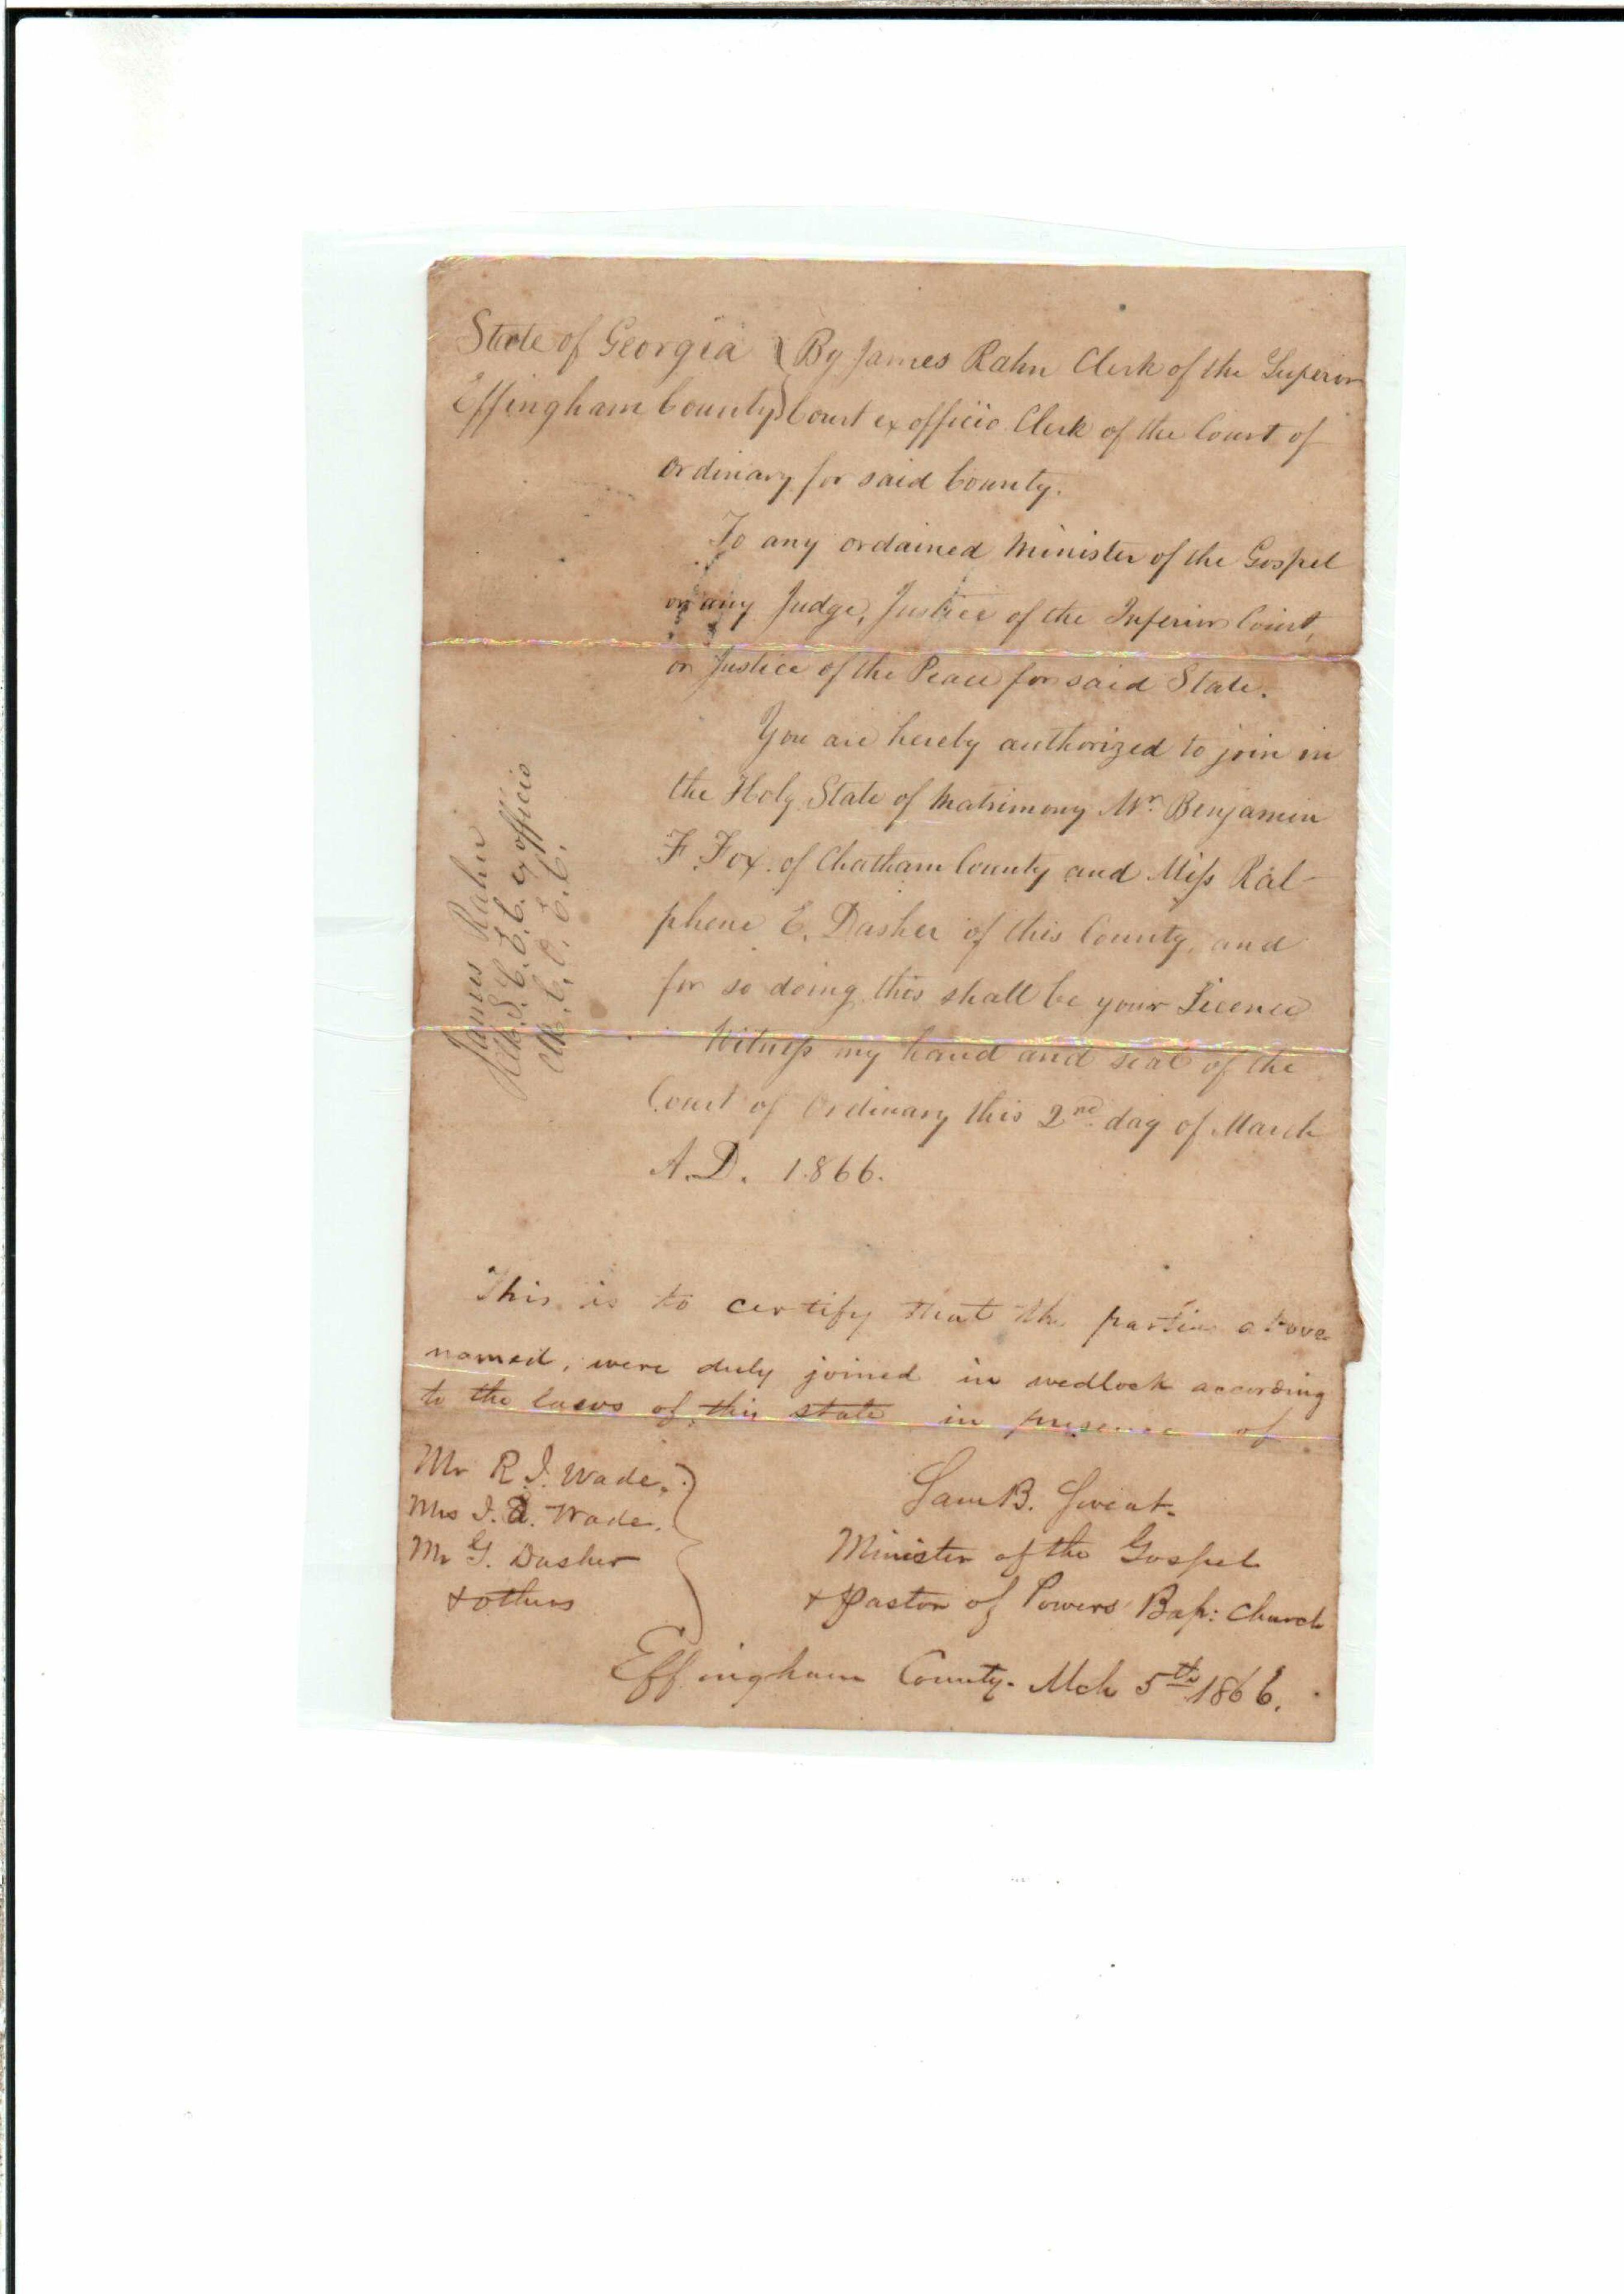 State of Georgia } By James Rahn Clerk of the Superior
Effingham County } Court ex officio Clerk of the Court of
ordinary for said County.
To any ordained Minister of the Gospel
or any Judge, Justice of the Inferior Court,
or Justice of the Peace for said State.
You are hereby authorized to join in
the Holy State of Matrimony Mr. Benjamin
F. Fox of Chatham County and Miss Ral-
phene E. Dasher of this County, and
for so doing this shall be your Licence
Witness my hand and seal of the
Court of Ordinary this 2nd day of March
A.D. 1866.
James Rahn
Clk. S. C. E. C. ex officio
Clk. C. O. E. C.
This is to certify that the parties above
named, were duly joined in wedlock according
to the laws of this state in presence of
Mr R. J. Wade,
Mrs J. Wade.
Mr G. Dasher
& others
Sam B. Sweat.
Minister of the Gospel
& Pastor of Powers Bap: Church
Effingham County. Mch 5th 1866.